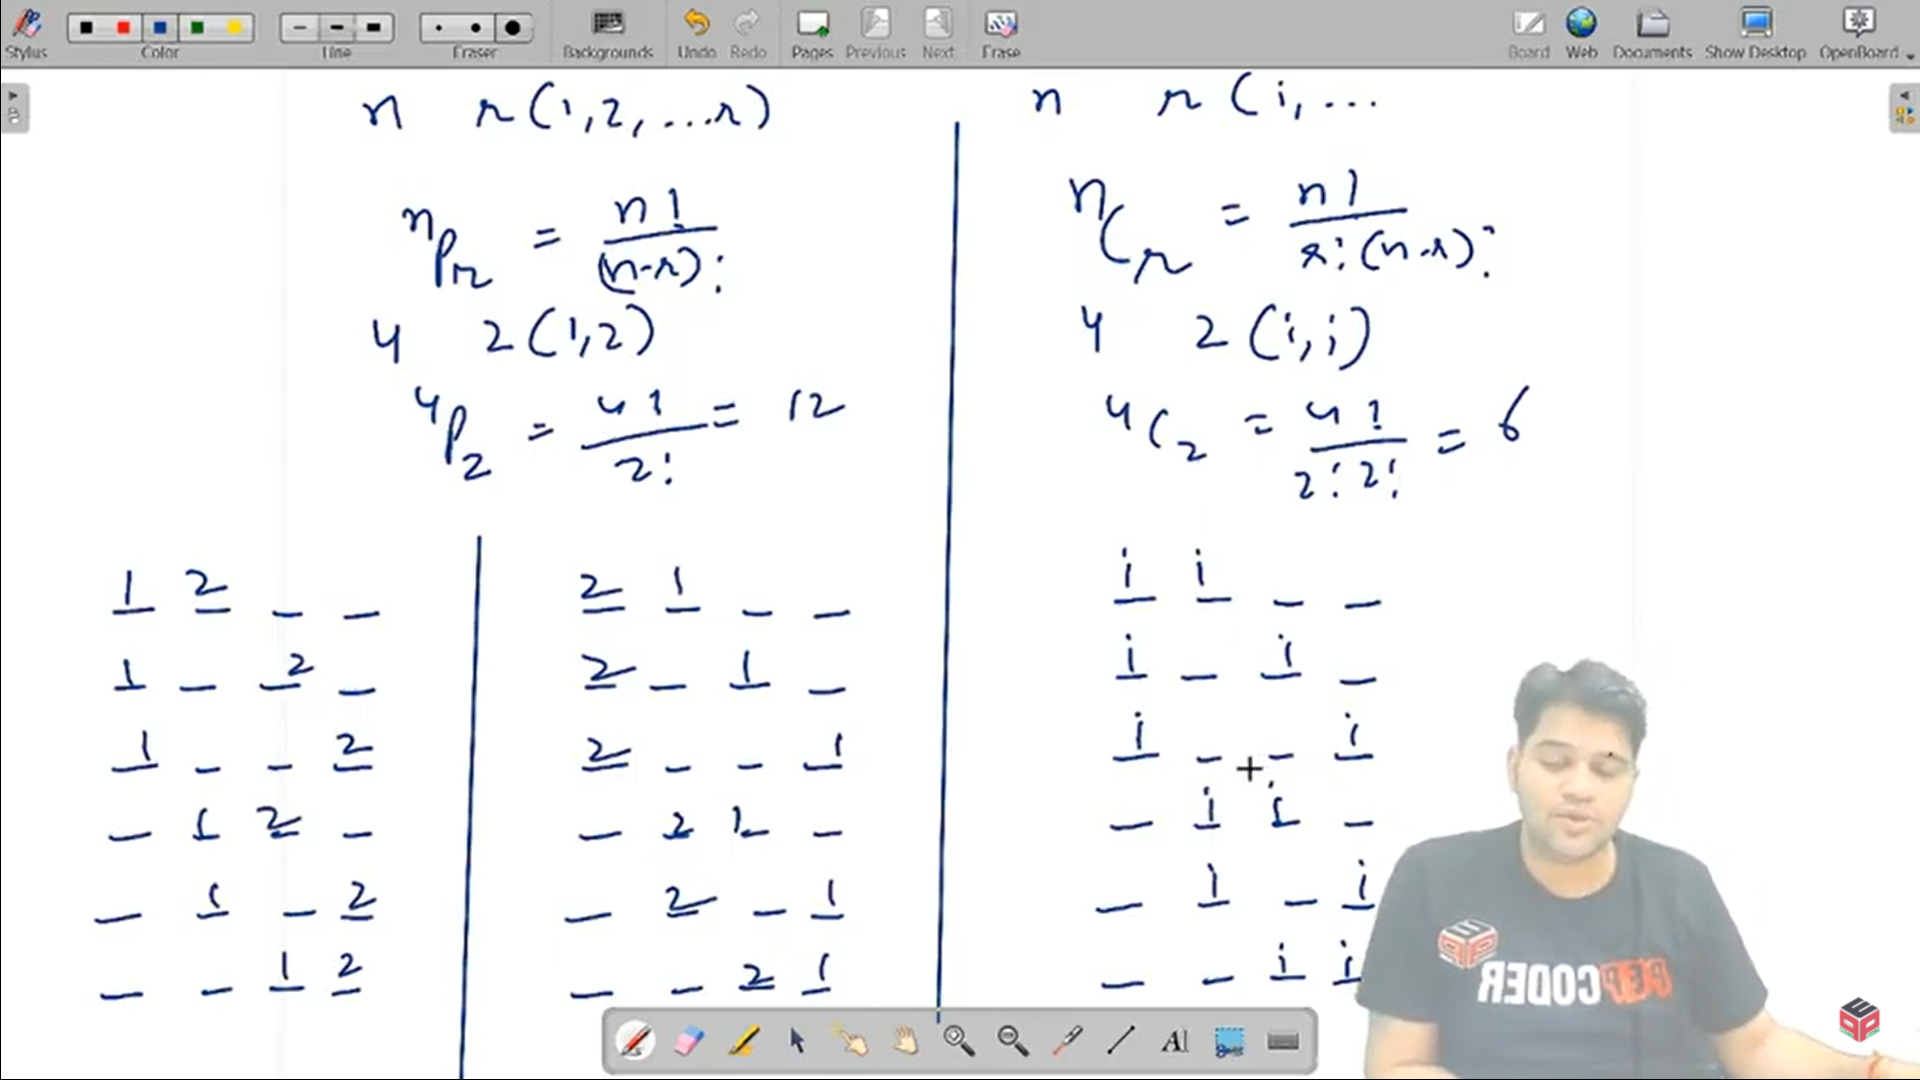 Stylus
Color
Line
Eraser
Backgrounds
Undo
Redo
Pages
Previous
Next
Erase
Board
Web
Documents
Show Desktop
OpenBoard
n r(1,2,...r)
nPr = n!/(n-r)!
4 2(1,2)
4P2 = 4!/2! = 12
1 2 _ _
1 _ 2 _
1 _ _ 2
_ 1 2 _
_ 1 _ 2
_ _ 1 2
2 1 _ _
2 _ 1 _
2 _ _ 1
_ 2 1 _
_ 2 _ 1
_ _ 2 1
n r(i,...
nCr = n!/r!(n-r)!
4 2(i,i)
4C2 = 4!/2!2! = 6
i i _ _
i _ i _
i _ _ i
_ i i _
_ i _ i
_ _ i i
PEPCODER
AI